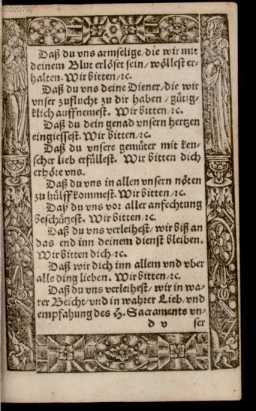 Daß du vns armselige/die wir mit
deinem Blut erlöset sein/wöllest er-
halten. Wir bitten/ꝛc.
Daß du vns deine Diener/die wir
vnser zuflucht zu dir haben/gütig-
klich auffnemest. Wir bitten/ꝛc.
Daß du dein genad vnsern hertzen
eingiessest. Wir bitten/ꝛc.
Daß du vnsere gemüter mit keu-
scher lieb erfüllest. Wir bitten dich
erhöre vns.
Daß du vns in allen vnsern nöten
zu hülff kommest. Wir bitten/ꝛc.
Daß du vns vor aller anfechtung
beschützest. Wir bitten ꝛc.
Daß du vns verleihest/wir biß an
das end inn deinem dienst bleiben.
Wir bitten dich ꝛc.
Daß wir dich inn allem vnd vber
alle ding lieben. Wir bitten/ꝛc.
Daß du vns verleihest/wir in wa-
rer Beicht/vnd in wahrer Lieb/vnd
empfahung des H. Sacraments vn-
d v ser